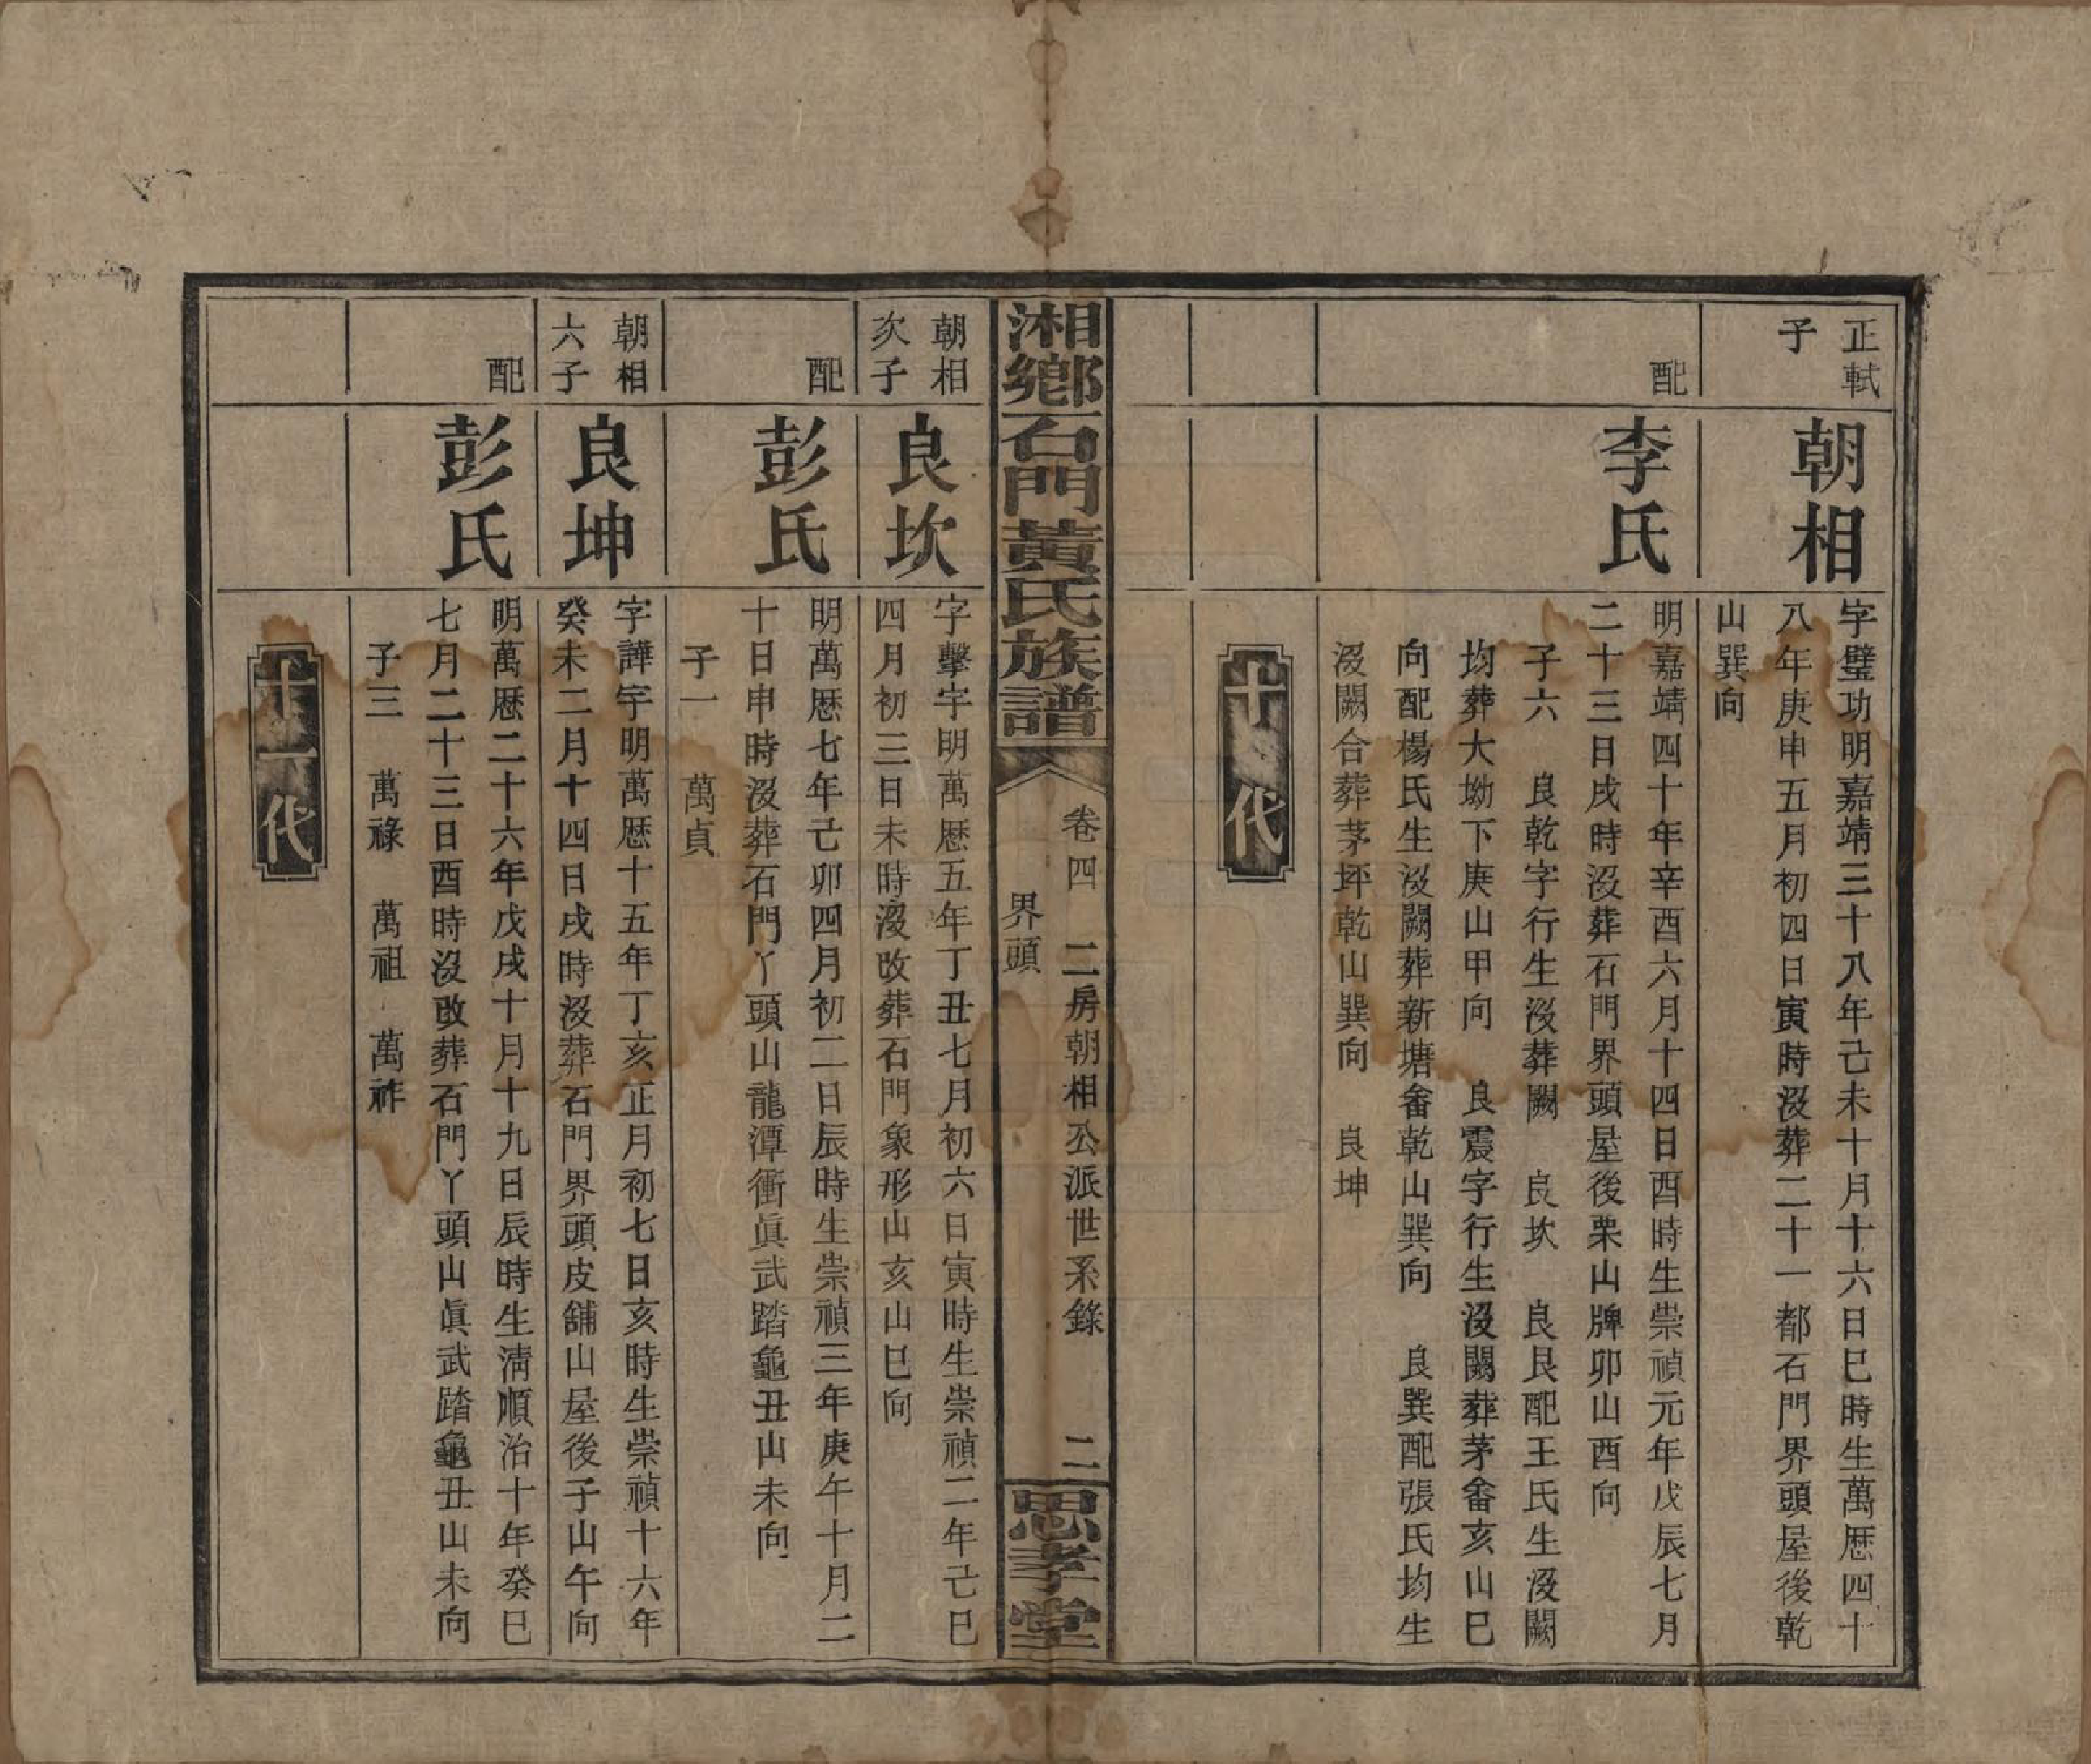 正軾
子
朝相
字璧功明嘉靖三十八年己未十月十六日巳時生萬歷四十
八年庚申五月初四日寅時沒葬二十一都石門界頭屋後乾
山巽向
配
李氏
明嘉靖四十年辛酉六月十四日酉時生崇禎元年戊辰七月
二十三日戌時沒葬石門界頭屋後栗山牌卯山酉向
子六　良乾字行生沒葬闕　良坎　良艮配王氏生沒闕
均葬大坳下庚山甲向　良震字行生沒闕葬茅畬亥山巳
向配楊氏生沒闕葬新塘畬乾山巽向　良巽配張氏均生
沒闕合葬茅坪乾山巽向　良坤
十代
湘鄉石門黃氏族譜
卷四　二房朝相公派世系錄　二
界頭
思孝堂
朝相
次子
良坎
字擊宇明萬歷五年丁丑七月初六日寅時生崇禎二年己巳
四月初三日未時沒改葬石門象形山亥山巳向
配
彭氏
明萬歷七年己卯四月初二日辰時生崇禎三年庚午十月二
十日申時沒葬石門丫頭山龍潭衝眞武踏龜丑山未向
子一　萬貞
朝相
六子
良坤
字譁宇明萬歷十五年丁亥正月初七日亥時生崇禎十六年
癸未二月十四日戌時沒葬石門界頭皮舖山屋後子山午向
配
彭氏
明萬歷二十六年戊戌十月十九日辰時生淸順治十年癸巳
七月二十三日酉時沒改葬石門丫頭山眞武踏龜丑山未向
子三　萬祿　萬祖　萬祚
十一代